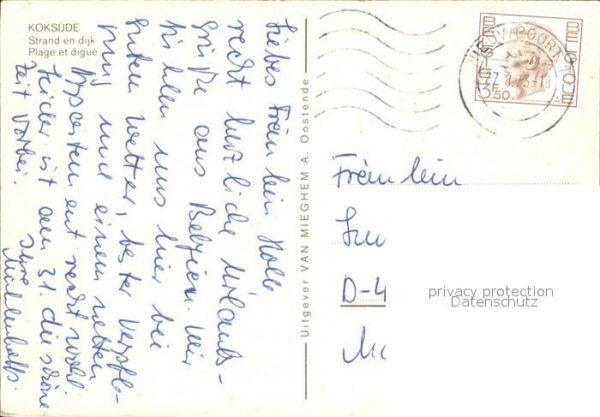 KOKSIJDE
Strand en dijk
Plage et digue
Liebes Fräulein Holle
recht herzliche Urlaubs-
grüße aus Belgien. Wir
fühlen uns hier bei
gutem Wetter, bester Verpfle-
gung und einem netten
Appartement recht wohl.
Leider ist am 31. die schöne
Zeit vorbei.
Ihre
Uitgever VAN MIEGHEM A. Oostende
BELGIE
BELGIQUE
NIEUWPOORT
3F50
Fräulein
D-4
privacy protection
Datenschutz